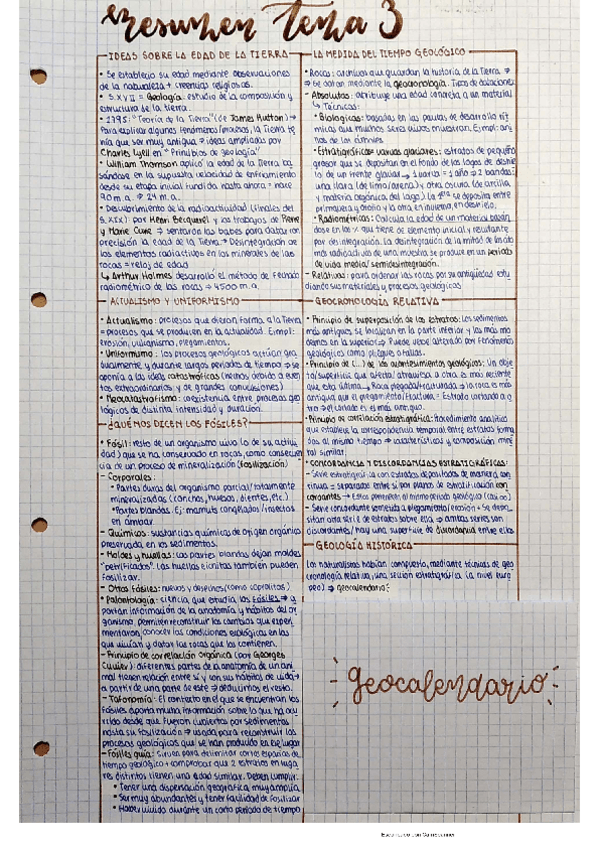 Resumen tema 3
IDEAS SOBRE LA EDAD DE LA TIERRA
• Se estableció su edad mediante observaciones
de la naturaleza + creencias religiosas.
• S.XVII = Geología: estudio de la composición y
estructura de la tierra.
• 1795: "Teoría de la Tierra" (de James Hutton) →
Para explicar algunos fenómenos/procesos, la Tierra te
nía que ser muy antigua → ideas ampliadas por
Charles Lyell en "Principios de geología"
• William Thomson aplicó la edad de la Tierra ba
sándose en la supuesta velocidad de enfriamiento
desde su etapa inicial fundida hasta ahora = hace
90 m.a. → 24 m.a.
• Descubrimiento de la radioactividad (finales del
S. XIX) por Henri Becquerel y los trabajos de Pierre
y Marie Curie → sentaron las bases para datar con
precisión la edad de la Tierra → Desintegración de
los elementos radiactivos en los minerales de las
rocas = reloj de edad
↳ Arthur Holmes desarrolló el método de
radiométrico de las rocas → 4500 m.a.
ACTUALISMO Y UNIFORMISMO
• Actualismo: procesos que dieron forma a la Tierra
= procesos que se producen en la actualidad. Ejmpl:
erosión, vulcanismo, plegamientos.
• Uniformismo: los procesos geológicos actúan gra
dualmente y durante largos períodos de tiempo → se
oponía a las ideas catastróficas (hechos debido a even
tos extraordinarios y de grandes convulsiones)
• Neocatastrofismo: coexistencia entre procesos geo
lógicos de distinta intensidad y duración.
¿QUÉ NOS DICEN LOS FÓSILES?
• Fósil: resto de un organismo vivo (o de su activi
dad) que se ha conservado en rocas, como consecuen
cia de un proceso de mineralización (fosilización)
- Corporales:
• Partes duras del organismo parcial/totalmente
mineralizadas (conchas, huesos, dientes, etc.)
• Partes blandas. Ej: mamuts congelados/insectos
en ámbar.
- Químicos: sustancias químicas de origen orgánico
preservada en los sedimentos.
- Moldes y huellas: las partes blandas dejan moldes
"petrificados". Las huellas e icnitas también pueden
fosilizar.
- Otros fósiles: huevos y desechos (como coprolitos)
• Paleontología: ciencia que estudia los fósiles → a
portan información de la anatomía y hábitos del or
ganismo, permiten reconstruir los cambios que exper
imentaron, conocer las condiciones ecológicas en las
que vivían y datar las rocas que los contienen.
- Principio de correlación orgánica (por Georges
Cuvier): diferentes partes de la anatomía de un ani
mal tienen relación entre sí y con sus hábitos de vida →
a partir de una parte de este → deducimos el resto.
- Tafonomía: El contexto en el que se encuentran los
fósiles aporta mucha información sobre lo que ha ocu
rrido desde que fueron cubiertos por sedimentos
hasta su fosilización → usada para reconstruir los
procesos geológicos que se han producido en ese lugar
- Fósiles guía: sirven para delimitar cortos espacios de
tiempo geológico + comprobar que 2 estratos en luga
res distintos tienen una edad similar. Deben cumplir:
• Tener una dispersación geográfica muy amplia
• Ser muy abundantes y tener facilidad de fosilizar
• Haber vivido durante un corto período de tiempo
LA MEDIDA DEL TIEMPO GEOLÓGICO
• Rocas: archivos que guardan la historia de la Tierra →
→ Se datan mediante la geocronología. Tipos de dataciones:
- Absolutas: atribuye una edad concreta a un material
↳ Técnicas:
• Biológicas: basadas en las pautas de desarrollo rít
micas que muchos seres vivos muestran. Ejmpl: ani
llos de los árboles
• Estratigráficas = varvas glaciares: estratos de pequeño
grosor que se depositan en el fondo de los lagos de deshie
lo de un frente glaciar → 1 varva = 1 año → 2 bandas:
una clara (de limo/arena) y otra oscura (de arcilla
y materia orgánica del lago). La 1ª se deposita entre
primavera y otoño y la otra, en invierno, en deshielo.
• Radiométricas: Calcula la edad de un material basán
dose en los % que tiene de elemento inicial y resultante
por desintegración. La desintegración de la mitad de los áto
mos radioactivos de una muestra se produce en un período
de vida media/semidesintegración.
- Relativas: para ordenar las rocas por su antigüedad estu
diando sus materiales y procesos geológicos
GEOCRONOLOGÍA RELATIVA
• Principio de superposición de los estratos: Los sedimentos
más antiguos se localizan en la parte inferior y los más mo
dernos en la superior → Puede verse alterado por fenómenos
geológicos como pliegues o fallas.
• Principio de (...) de los acontecimientos geológicos: Un obje
to/superficie que afecta/atraviesa a otra es más reciente
que esta última → Roca plegada/fracturada → la roca es más
antigua que el plegamiento/fractura = Estrato cortando a o
tro → el cortado es el más antiguo.
• Principio de correlación estratigráfica: Procedimiento analítico
que establece la correspondencia temporal entre estratos forma
dos al mismo tiempo → características y composición mine
ral similar.
• CONCORDANCIA Y DISCORDANCIAS ESTRATIGRÁFICAS:
- Serie estratigráfica = con estratos depositados de manera con
tinua = separados entre sí por planos de estratificación con
cordantes → Estos pertenecen al mismo período geológico (casi no)
- Serie concordante sometida a plegamiento/erosión → Se depo
sitan otra serie de estratos sobre ella → ambas series son
discordantes/hay una superficie de discordancia entre ellas
GEOLOGÍA HISTÓRICA
Los naturalistas habían compuesto, mediante técnicas de geo
cronología relativa, una sección estratigráfica (a nivel euro
peo) → geocalendario:
geocalendario
Escaneado con CamScanner